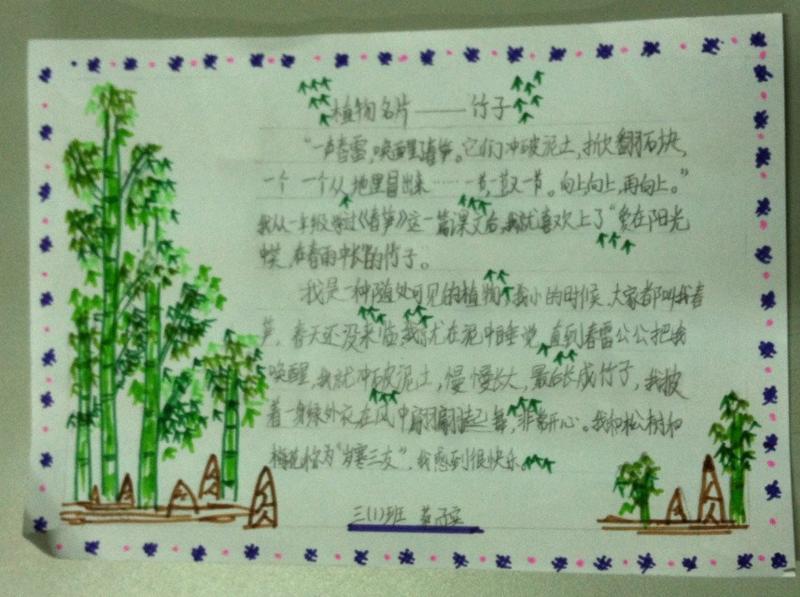 植物名片——竹子
"一声春雷,唤醒了春笋。它们冲破泥土,掀翻石块,
一个 一个从地里冒出来……一节,一节又一节。向上,向上,再向上。"
我从一年级读过《春笋》这一篇课文后,我就喜欢上了"爱在阳光
中笑,在春雨中长"的竹子。
我是一种随处可见的植物,我小的时候,大家都叫我春
笋。春天还没来临,我就在泥中睡觉,直到春雷公公把我
唤醒,我就冲破泥土,慢慢长大,最后长成竹子,我披
着一身绿外衣在风中翩翩起舞,非常开心。我和松树和
梅花称为"岁寒三友",我感到很快乐。
三(1)班